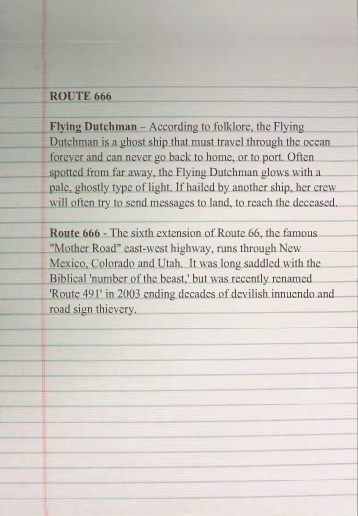 ROUTE 666
Flying Dutchman – According to folklore, the Flying
Dutchman is a ghost ship that must travel through the ocean
forever and can never go back to home, or to port. Often
spotted from far away, the Flying Dutchman glows with a
pale, ghostly type of light. If hailed by another ship, her crew
will often try to send messages to land, to reach the deceased.
Route 666 - The sixth extension of Route 66, the famous
"Mother Road" east-west highway, runs through New
Mexico, Colorado and Utah.  It was long saddled with the
Biblical 'number of the beast,' but was recently renamed
'Route 491' in 2003 ending decades of devilish innuendo and
road sign thievery.